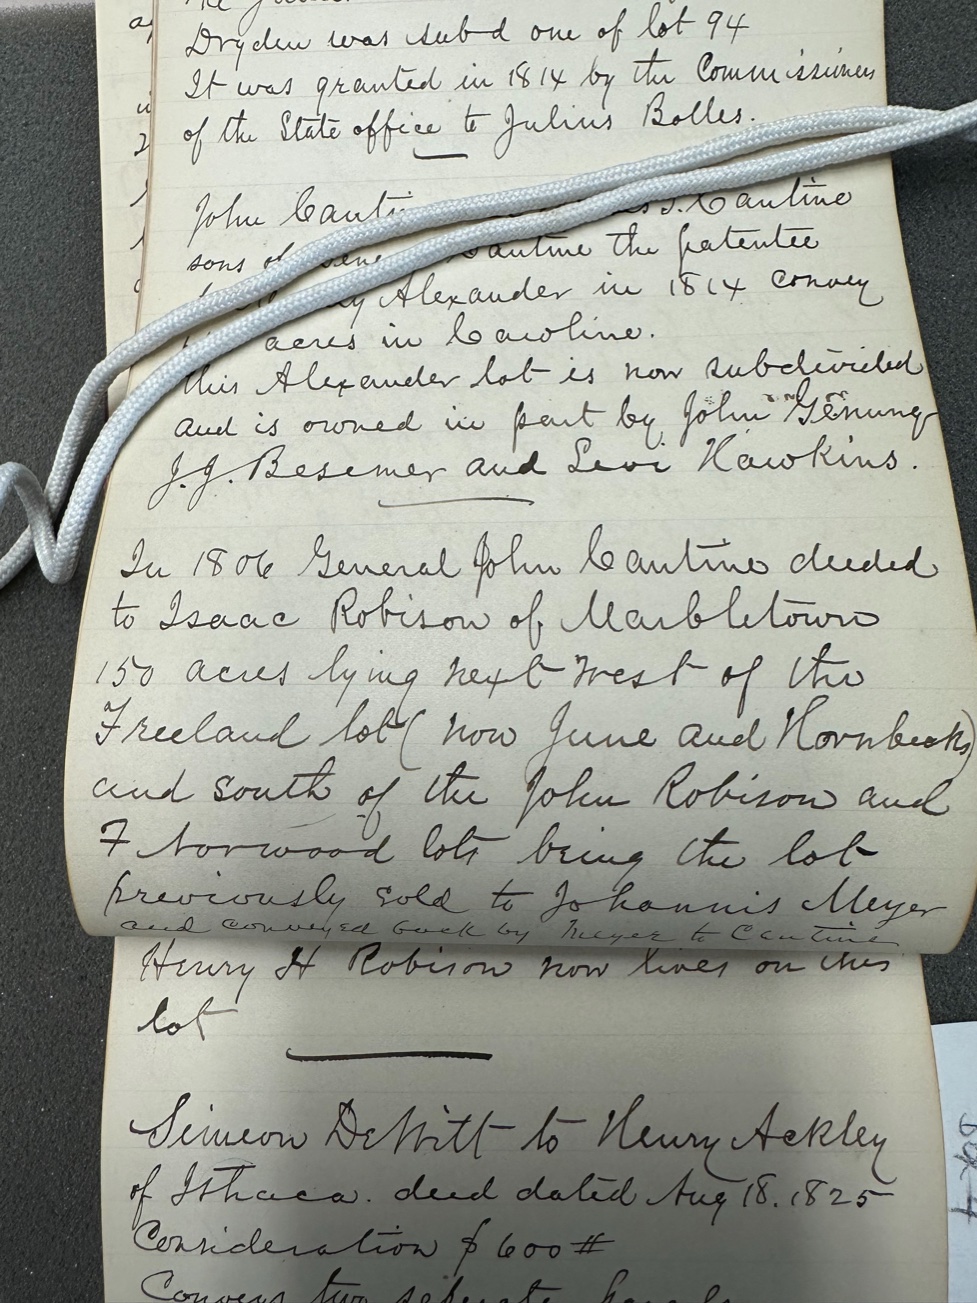 Dryden was subd one of lot 94
It was granted in 1814 by the Commissioners
of the State office to Julius Bolles.
John Canti Cantine
sons of Cantine the patentee
Alexander in 1814 convey
acres in Caroline.
this Alexander lot is now subdivided
and is owned in part by John Genung
J. J. Besemer and Levi Hawkins.
In 1806 General John Cantine deeded
to Isaac Robison of Marbletown
150 acres lying next west of the
Freeland lot (now June and Hornbecks)
and south of the John Robison and
F Norwood lots being the lot
previously sold to Johannis Meyer
and conveyed back by Meyer to Cantine
Henry H Robison now lives on this
lot
Simeon DeWitt to Henry Ackley
of Ithaca. deed dated Aug 18. 1825
Consideration $600#
Conveys two seperate